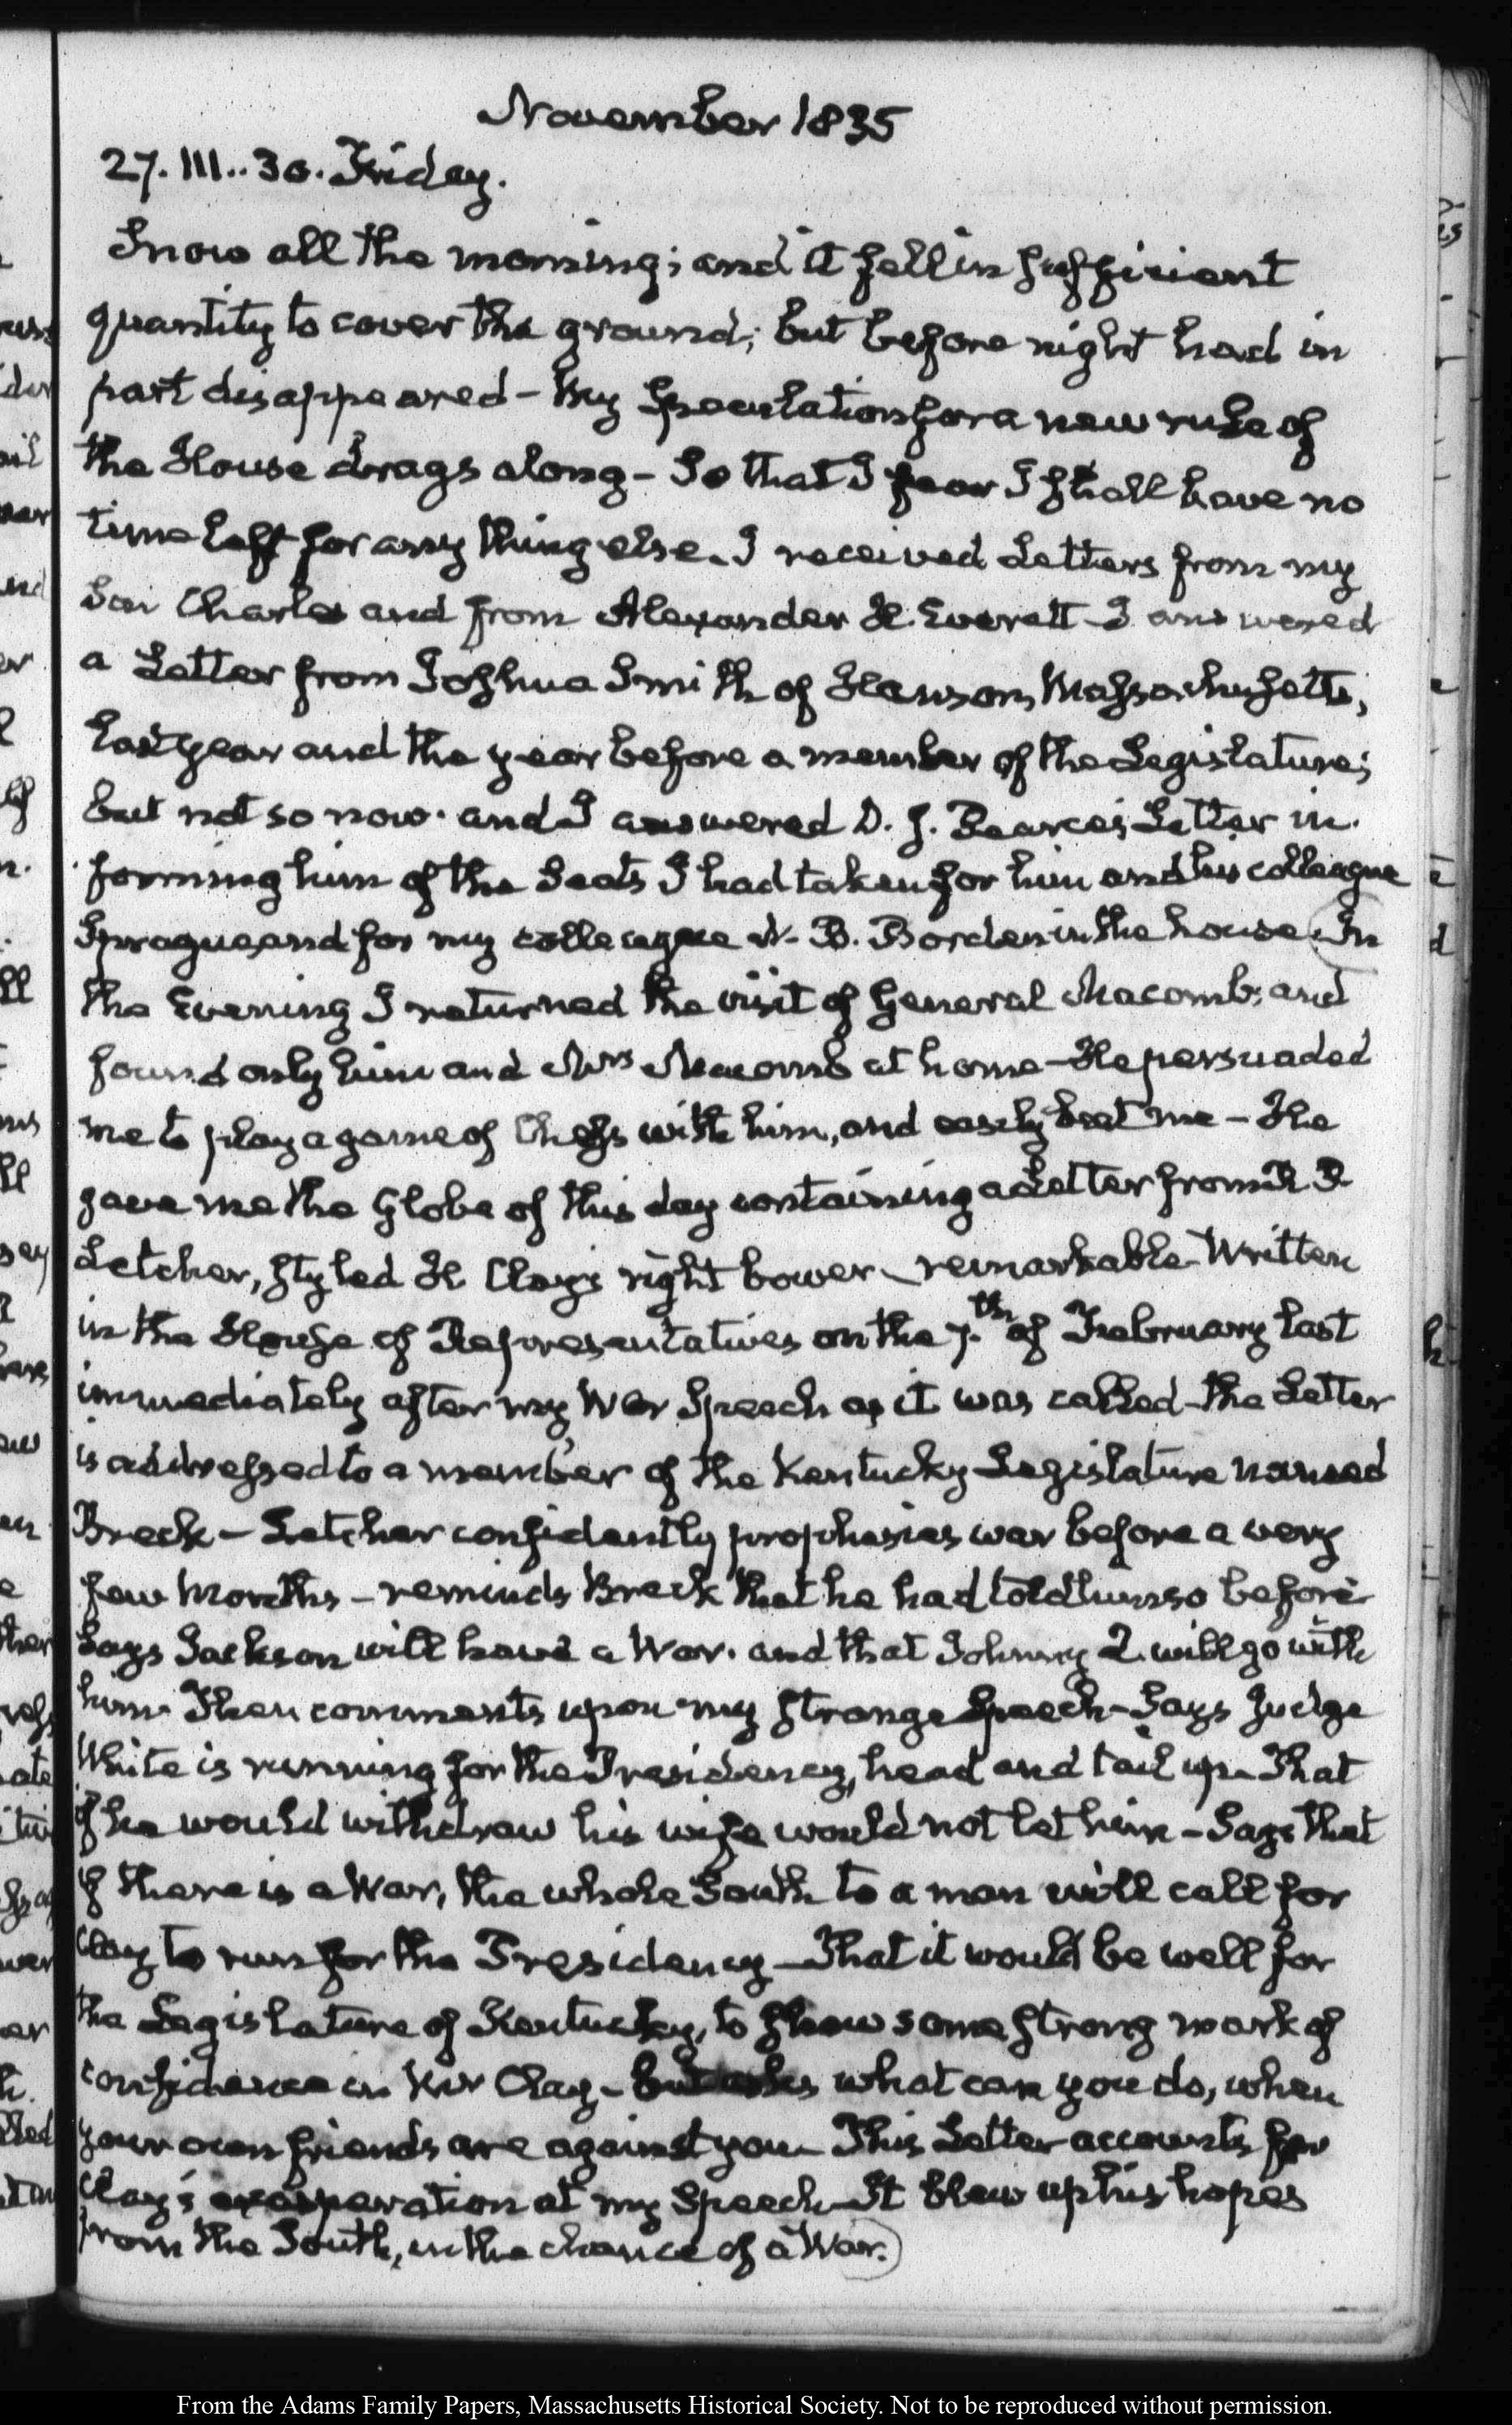 November 1835
27. III..30. Friday.
Snow all the morning; and it fell in sufficient
quantity to cover the ground; but before night had in
part disappeared - My Speculation for a new rule of
the House drags along - So that I fear I shall have no
time left for any thing else. I received Letters from my
Son Charles and from Alexander H. Everett - I answered
a Letter from Joshua Smith of Hanson, Massachusetts,
last year and the year before a member of the Legislature;
but not so now. and I answered D. J. Pearce's Letter in-
forming him of the Seats I had taken for him and his colleague
Sprague, and for my colleague N. B. Borden in the house (In
the Evening I returned the visit of General Macomb; and
found only him and Mrs Macomb at home - He persuaded
me to play a game of Chess with him, and easily beat me - He
gave me the Globe of this day containing a Letter from R. P.
Letcher, styled H. Clay's right bower - remarkable - Written
in the House of Representatives on the 7.th of February last
immediately after my War Speech as it was called - the Letter
is addressed to a member of the Kentucky Legislature named
Breck - Letcher confidently prophesies war before a very
few Months - reminds Breck that he had told him so before
Says Jackson will have a War. and that Johnny Q. will go with
him. Then comments upon my strange Speech - Says Judge
White is running for the Presidency, head and tail up - That
if he would withdraw his wife would not let him - Says that
if there is a War, the whole South to a man will call for
Clay to run for the Presidency - That it would be well for
the Legislature of Kentucky, to show some strong mark of
confidence in Mr Clay - but asks what can you do, when
your own friends are against you - This Letter accounts for
Clay's exasperation at my Speech - It blew up his hopes
from the South, in the chance of a War.)
From the Adams Family Papers, Massachusetts Historical Society. Not to be reproduced without permission.